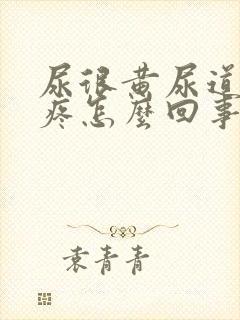 尿很黄尿道
疼怎麼回事
袁青青